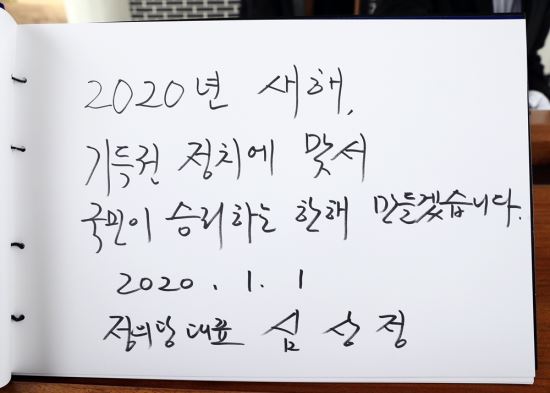 2020년 새해,
기득권 정치에 맞서
국민이 승리하는 한해 만들겠습니다.
2020. 1. 1
정의당 대표 심상정